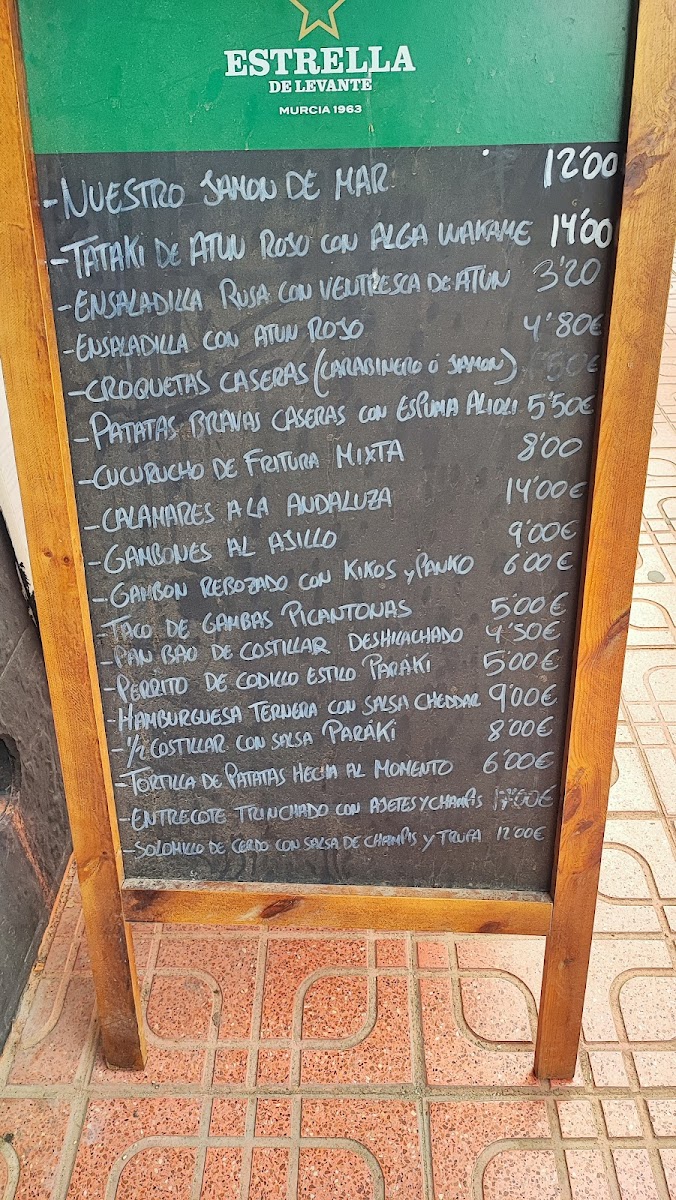 ESTRELLA
DE LEVANTE
MURCIA 1963
-NUESTRO JAMON DE MAR 12'00
-TATAKI DE ATUN ROJO CON ALGA WAKAME 14'00
-ENSALADILLA RUSA CON VENTRESCA DE ATUN 3'20
-ENSALADILLA CON ATUN ROJO 4'80€
-CROQUETAS CASERAS (CARABINERO ó JAMON)
-PATATAS BRAVAS CASERAS CON ESPUMA ALIOLI 5'50€
-CUCURUCHO DE FRITURA MIXTA 8'00
-CALAMARES A LA ANDALUZA 14'00€
-GAMBONES AL AJILLO 9'00€
-GAMBON REBOZADO CON KIKOS Y PANKO 6'00€
-TACO DE GAMBAS PICANTONAS 5'00€
-PAN BAO DE COSTILLAR DESHILACHADO 4'50€
-PERRITO DE CODILLO ESTILO PARÁKI 5'00€
-HAMBURGUESA TERNERA CON SALSA CHEDDAR 9'00€
-1/2 COSTILLAR CON SALSA PARÁKI 8'00€
-TORTILLA DE PATATAS HECHA AL MOMENTO 6'00€
-ENTRECOTE TRINCHADO CON AJETES Y CHAMPIS
-SOLOMILLO DE CERDO CON SALSA DE CHAMPIS Y TRUFA 12'00€